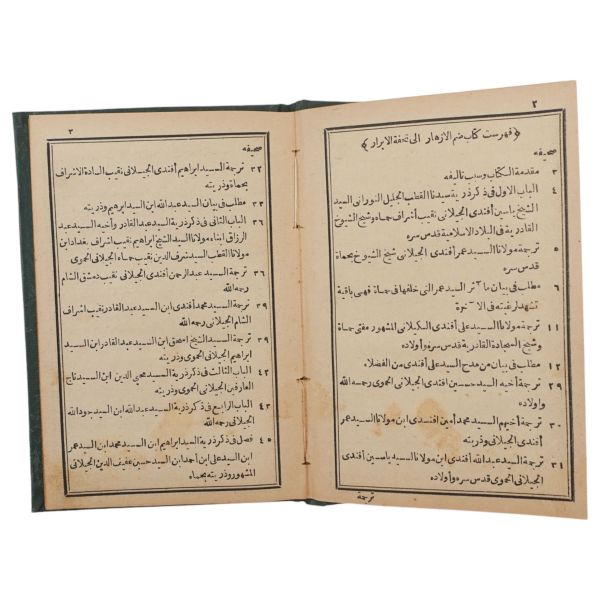 ٢
﴿فهرست كتاب ضم الازهار الى تحفة الابرار﴾
صحيفه
٣ مقدمة الكتاب وسبب تاليفه
٤ الباب الاول فى ذكر ذرية سيدنا القطب الجليل النورانى السيد
الشيخ ياسين أفندى الجيلانى نقيب أشراف حماه وشيخ الشيوخ
القادرية فى البلاد الاسلامية قدس سره
٥ ترجمة مولانا السيد عمر أفندى الجيلانى شيخ الشيوخ بحماة
قدس سره
٦ مطلب فى بيان مآثر السيد عمر التى خلفها فى حماة فهى باقية
تشهد لرغبته فى الآخرة
١١ ترجمة مولانا السيد على أفندى الكيلانى المشهور مفتى حماة
وشيخ السجادة القادرية قدس سره وأولاده
١٢ مطلب فى بيان من مدح السيد على أفندى من الفضلاء
٢٩ ترجمة أخيه السيد حسين افندى الجيلانى الحموى رحمه الله
وأولاده
٣٠ ترجمة أخيهم السيد محمد أمين افندى ابن مولانا السيد عمر
أفندى الجيلانى وذريته
٣١ ترجمة السيد عبد الله أفندى ابن مولانا السيد ياسين أفندى
الجيلانى الحموى قدس سره وأولاده
ترجمة
٣
صحيفه
٣٢ ترجمة السيد ابراهيم أفندى الجيلانى نقيب السادة الاشراف
بحماة وذريته
٣٣ مطلب فى بيان السيد عبد الله ابن السيد ابراهيم وذريته
٣٦ الباب الثانى فى ذكر ذرية السيد عبد القادر وأخيه السيد عبد
الرزاق ابناء مولانا السيد الشيخ ابراهيم نقيب اشراف بغداد ابن
مولانا القطب السيد شرف الدين نقيب حماه الجيلانى الحموى
٣٦ ترجمة السيد عبد الرحمن أفندى الجيلانى نقيب دمشق الشام
رحمه الله
٣٩ ترجمة السيد محمد أفندى ابن السيد عبد القادر نقيب اشراف
الشام الجيلانى رحمه الله
٣٩ ترجمة السيد الشيخ اسحق ابن السيد عبد القادر ابن السيد
ابراهيم الجيلانى الحموى وذريته
٤٢ الباب الثالث فى ذكر ذرية السيد محيى الدين ابن السيد تاج
العارفين الجيلانى الحموى وذريته
٤٣ الباب الرابع فى ذكر ذرية السيد عبد الله ابن السيد جود الله
الجيلانى رحمه الله
٤٥ فصل فى ذكر ذرية السيد ابراهيم ابن السيد محمد ابن السيد عمر
ابن السيد على ابن أحمد ابن السيد حسين عفيف الدين الجيلانى
المشهور وذريته بحماه